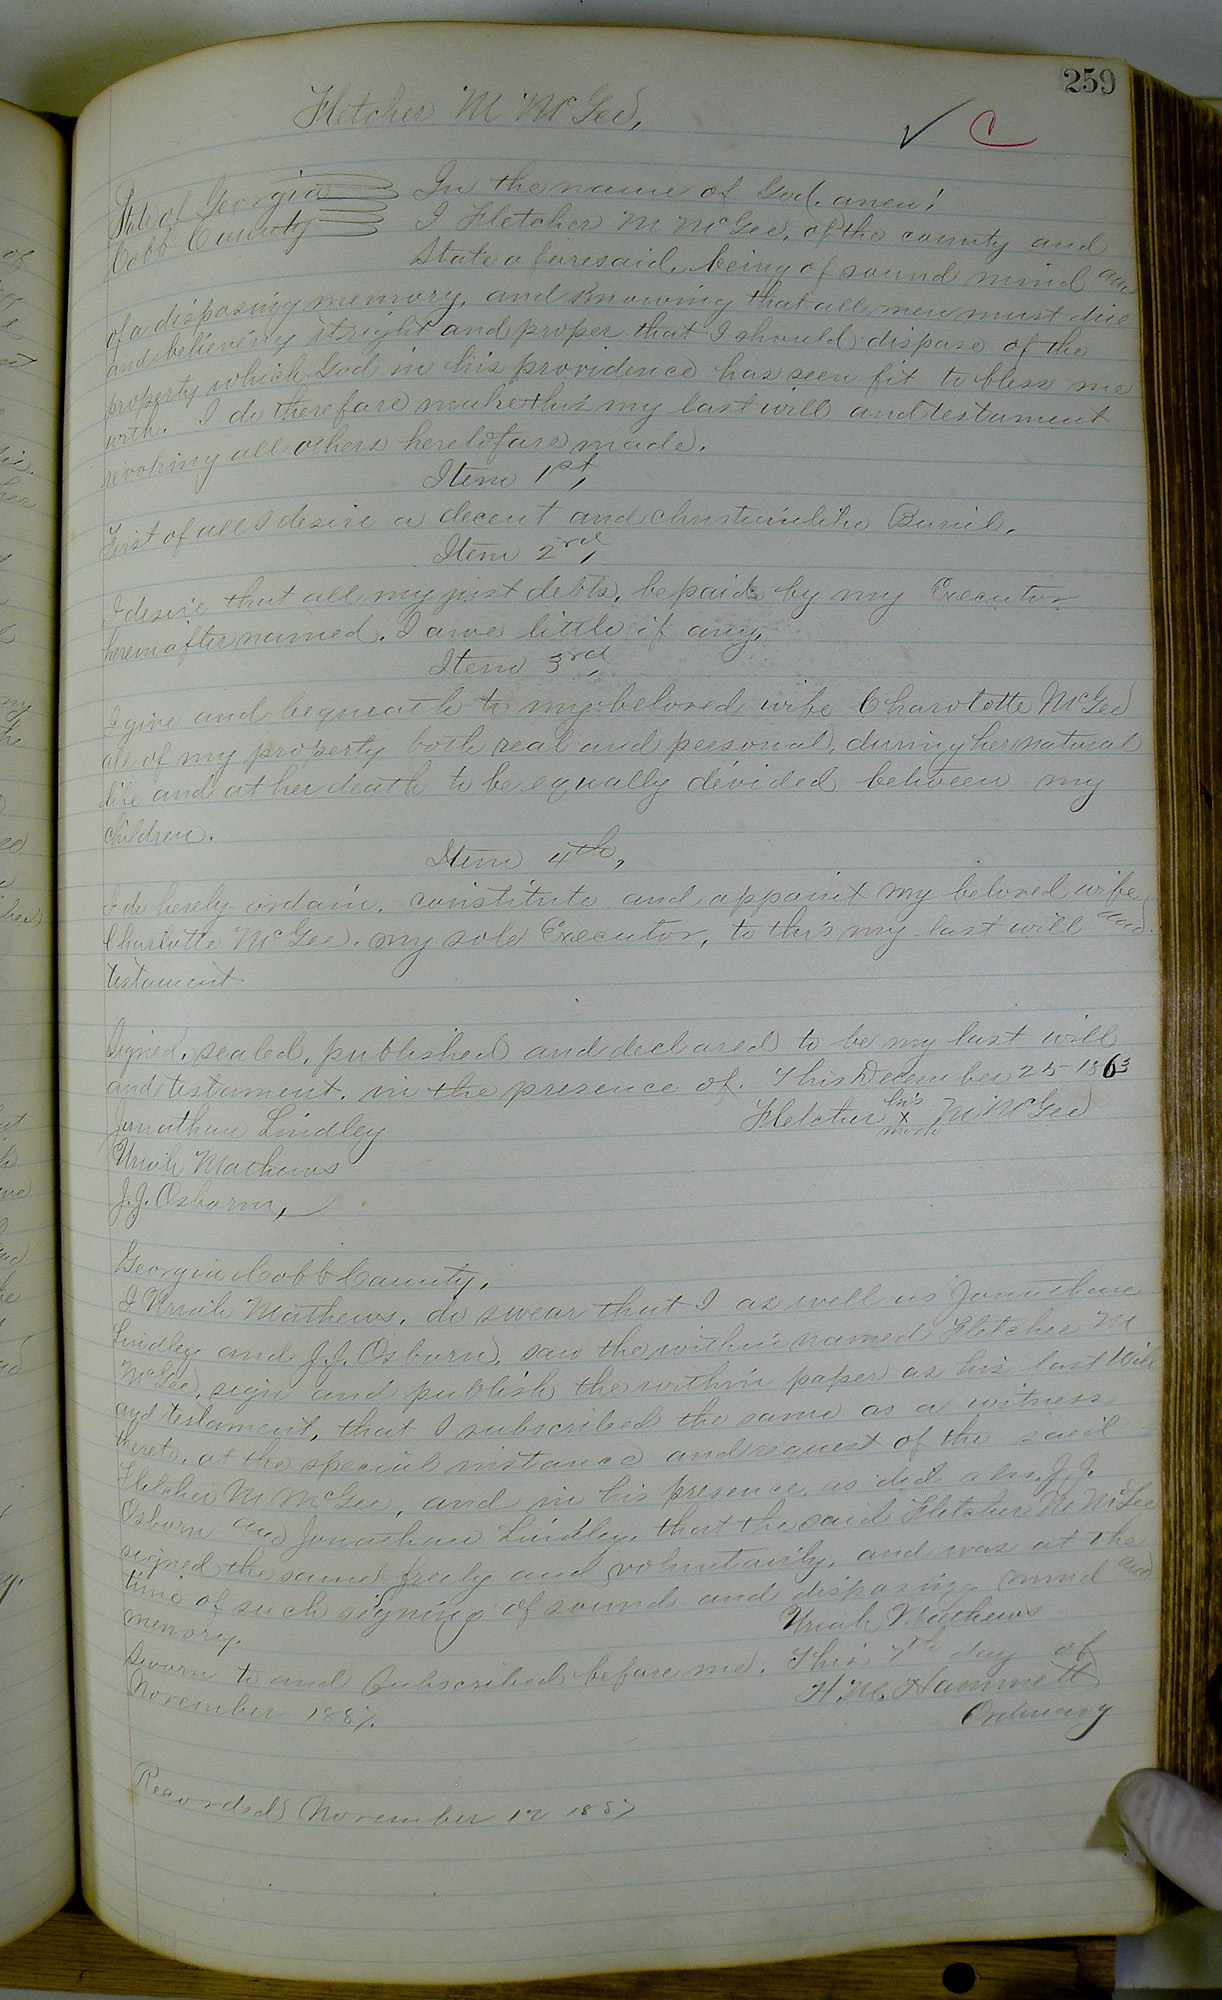 259
Fletcher M McGee,
C
State of Georgia
Cobb County
In the name of God, amen!
I Fletcher M McGee, of the county and
State aforesaid, being of sound mind and
of a disposing memory, and knowing that all men must die
and believing it right and proper that I should dispose of the
property which God in his providence has seen fit to bless me
with. I do therefore make this my last will and testament
revoking all others heretofore made.
Item 1st,
First of all I desire a decent and christianlike Buriel.
Item 2rd,
I desire that all my just debts, be paid by my Executor
hereinafter named. I owe little if any,
Item 3rd,
I give and bequeath to my beloved wife Charolotte McGee
all of my property both real and personal, during her natural
life and at her death to be equally divided between my
children.
Item 4th,
I do hereby ordain, constitute and appoint my beloved wife
Charlotte McGee, my sole Executor, to this my last will and
testament
Signed, sealed, published and declared to be my last will
and testament, in the presence of. This December 25 1863
Fletcher his x mark M McGee
Jonathan Lindley
Uriah Mathews
J.J. Osborn,
Georgia Cobb County,
I Uriah Mathews, do swear that I as well as Jonathan
Lindley and J.J. Osburn, saw the within named Fletcher M
McGee, sign and publish the within paper as his last Will
and testament, that I subscribed the same as a witness
thereto, at the special instance and request of the said
Fletcher M McGee, and in his presence, as did also J.J.
Osburn and Jonathan Lindley, that the said Fletcher M McGee
signed the same freely and voluntarily, and was at the
time of such signing of sound and disposing mind and
memory.
Uriah Mathews
Sworn to and Subscribed before me. This 7th day of
November 1887.
H.M. Hammett
Ordinary
Recorded November 12 1887